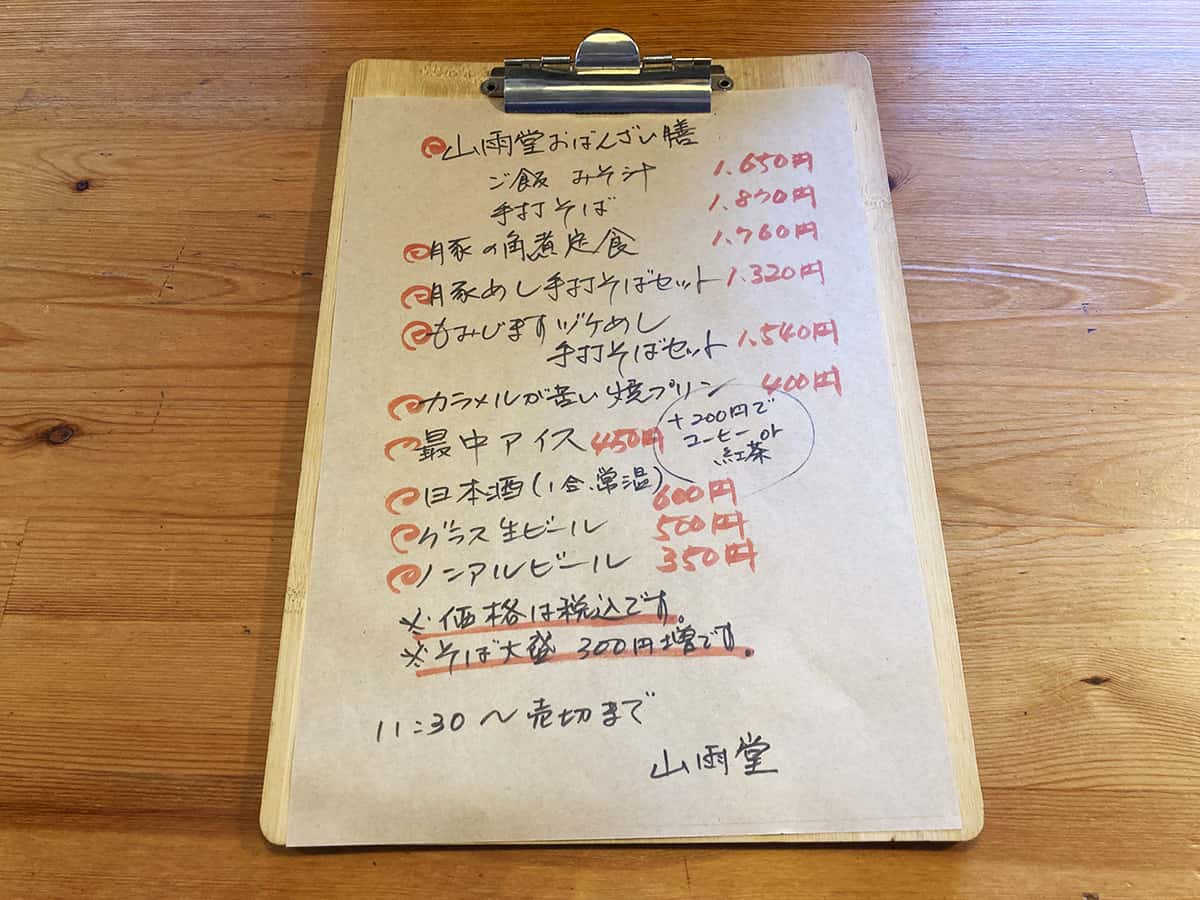 山雨堂おばんざい膳
ご飯 みそ汁 1.650円
手打そば 1.870円
豚の角煮定食 1.760円
豚めし手打そばセット 1.320円
もみじますヅケめし
手打そばセット 1.540円
カラメルが苦い焼プリン 400円
+200円で
コーヒー or
紅茶
最中アイス 450円
日本酒(1合.常温) 600円
グラス生ビール 500円
ノンアルビール 350円
※価格は税込です。
※そば大盛 300円増です。
11:30〜売切まで
山雨堂